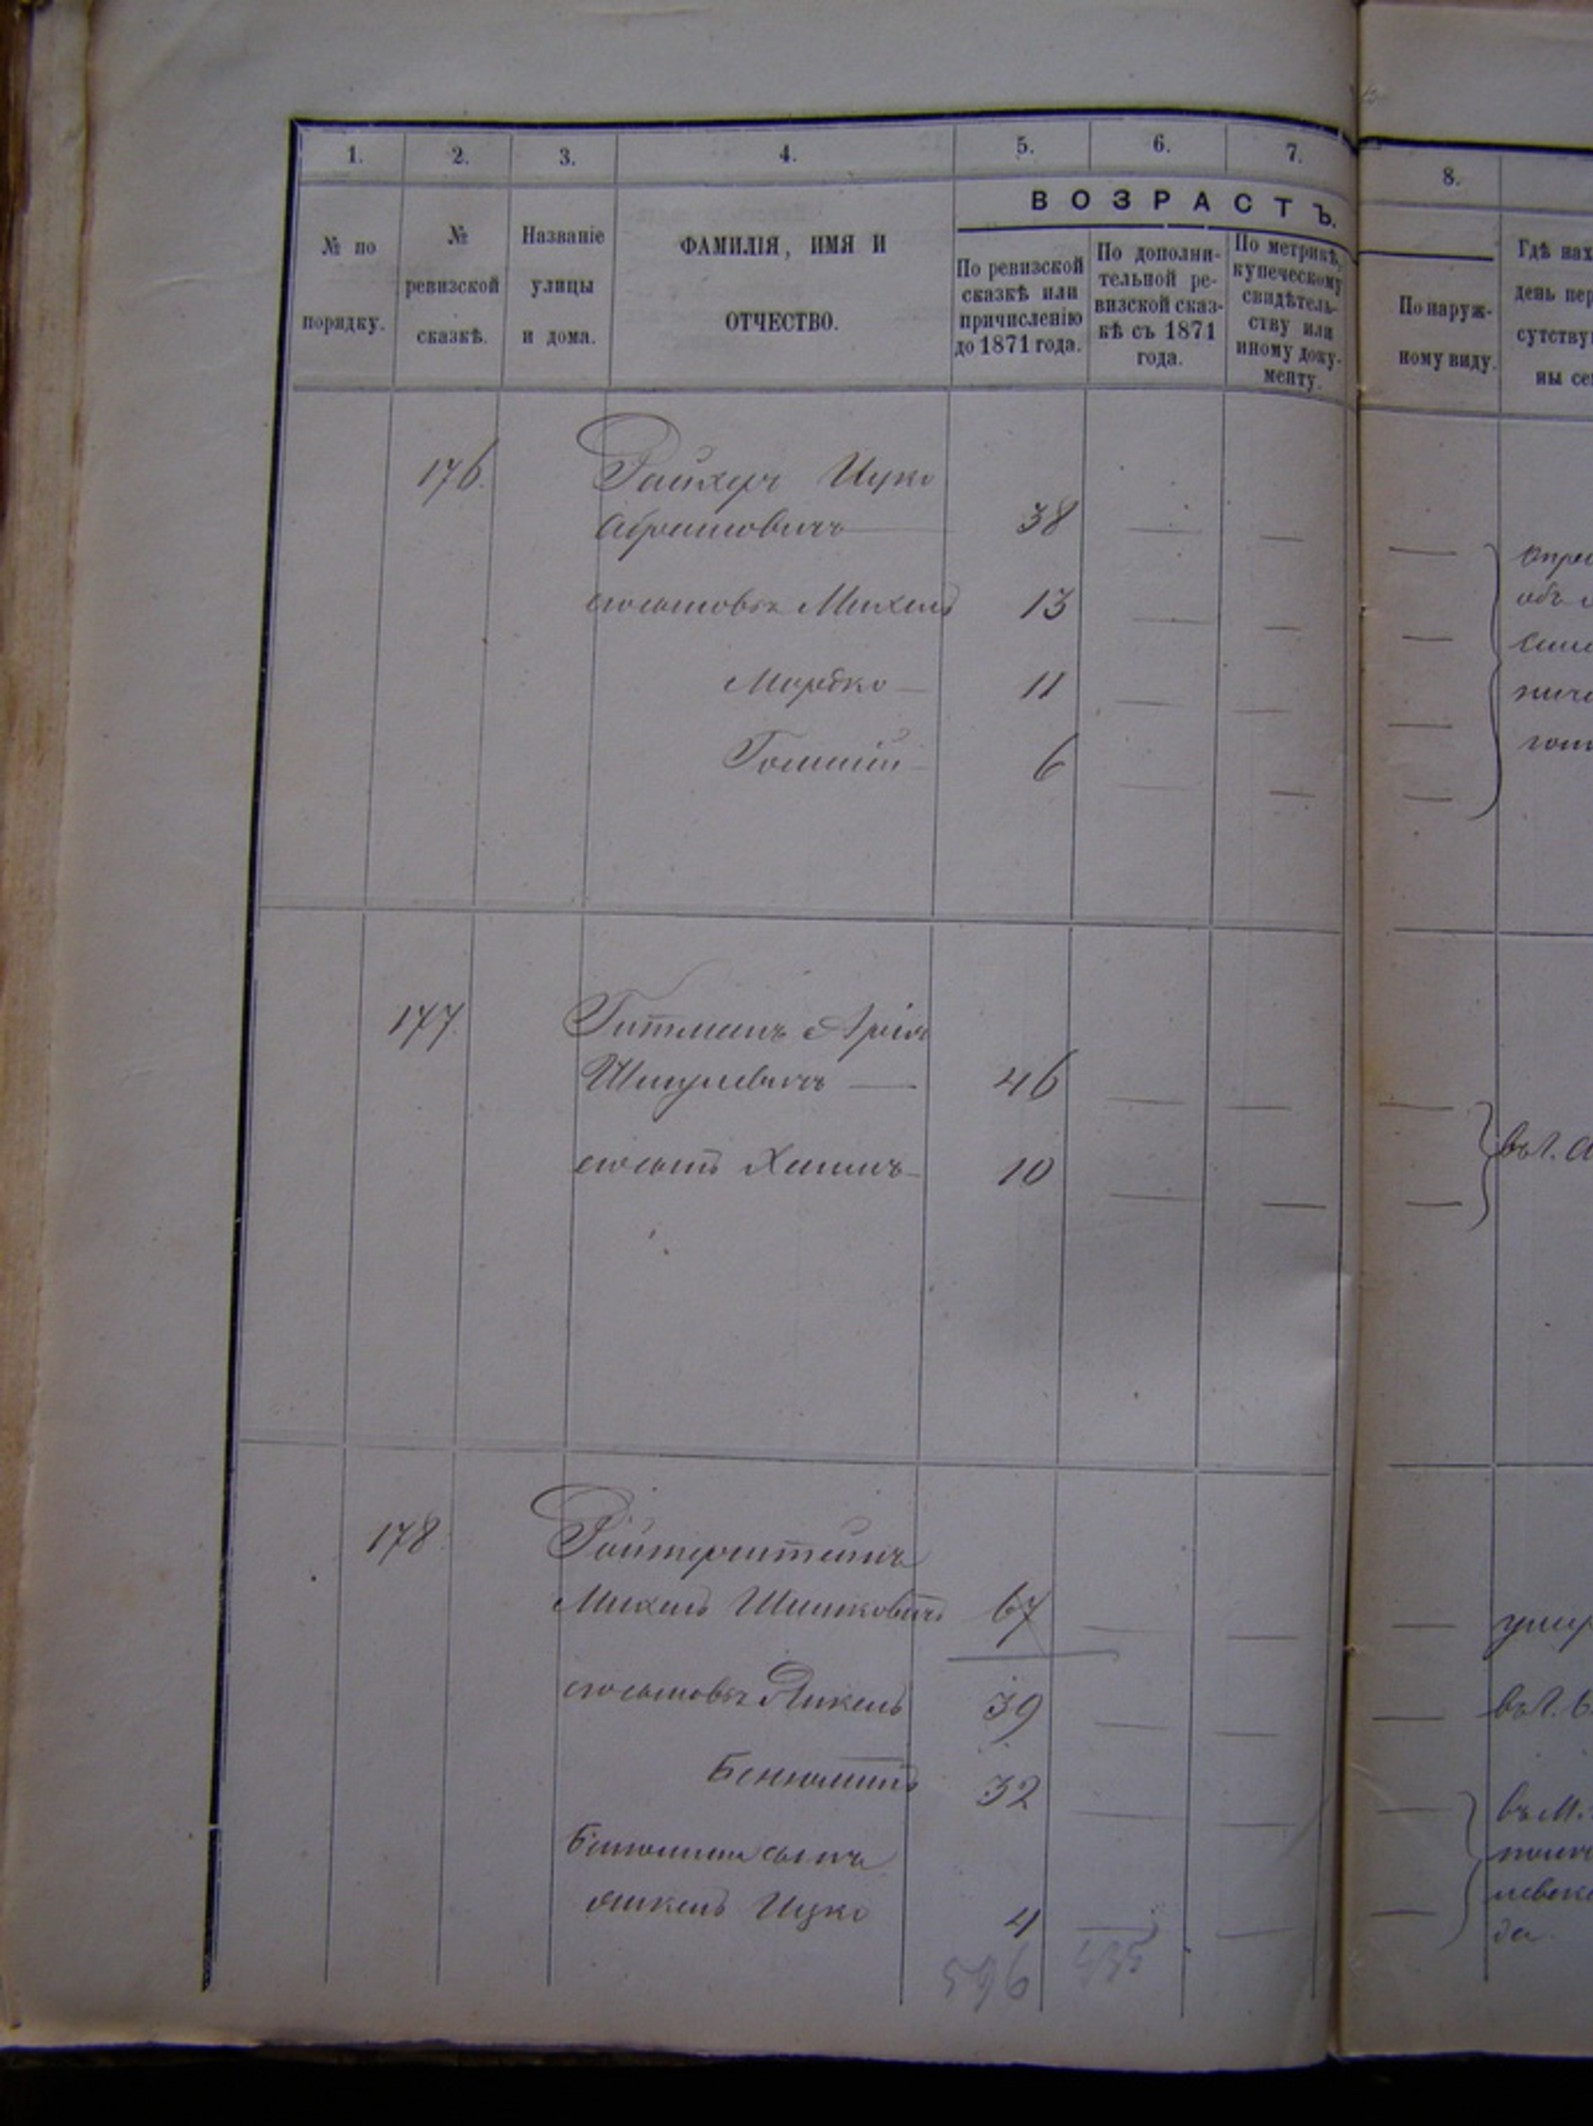 1. 2. 3. 4. 5. 6. 7. 8.
№ по порядку.
№ ревизской сказкѣ.
Названіе улицы и дома.
ФАМИЛІЯ, ИМЯ И ОТЧЕСТВО.
ВОЗРАСТЪ.
По ревизской сказкѣ или причисленію до 1871 года.
По дополнительной ревизской сказкѣ съ 1871 года.
По метрикѣ, купеческому свидѣтельству или иному документу.
По наружному виду.
Гдѣ нах
день пер
сутству
ны се
176. Райхер Ицко
Абрамовичъ — 38 — — —
сыновья Михель 13 — — —
Мордко — 11 — — —
6 — — —
177. Гитманъ Арія
Шмулевичъ — 46 — — —
сынъ Хаимъ — 10 — — —
въ г.
178. Ройтерштейнъ
Михель 67 — — —
сыновья Янкель 39 — — —
въ г.
Беніоминъ 32 — — —
въ М.
Беніомина сынъ
Янкель Ицко 4 — — —
да.